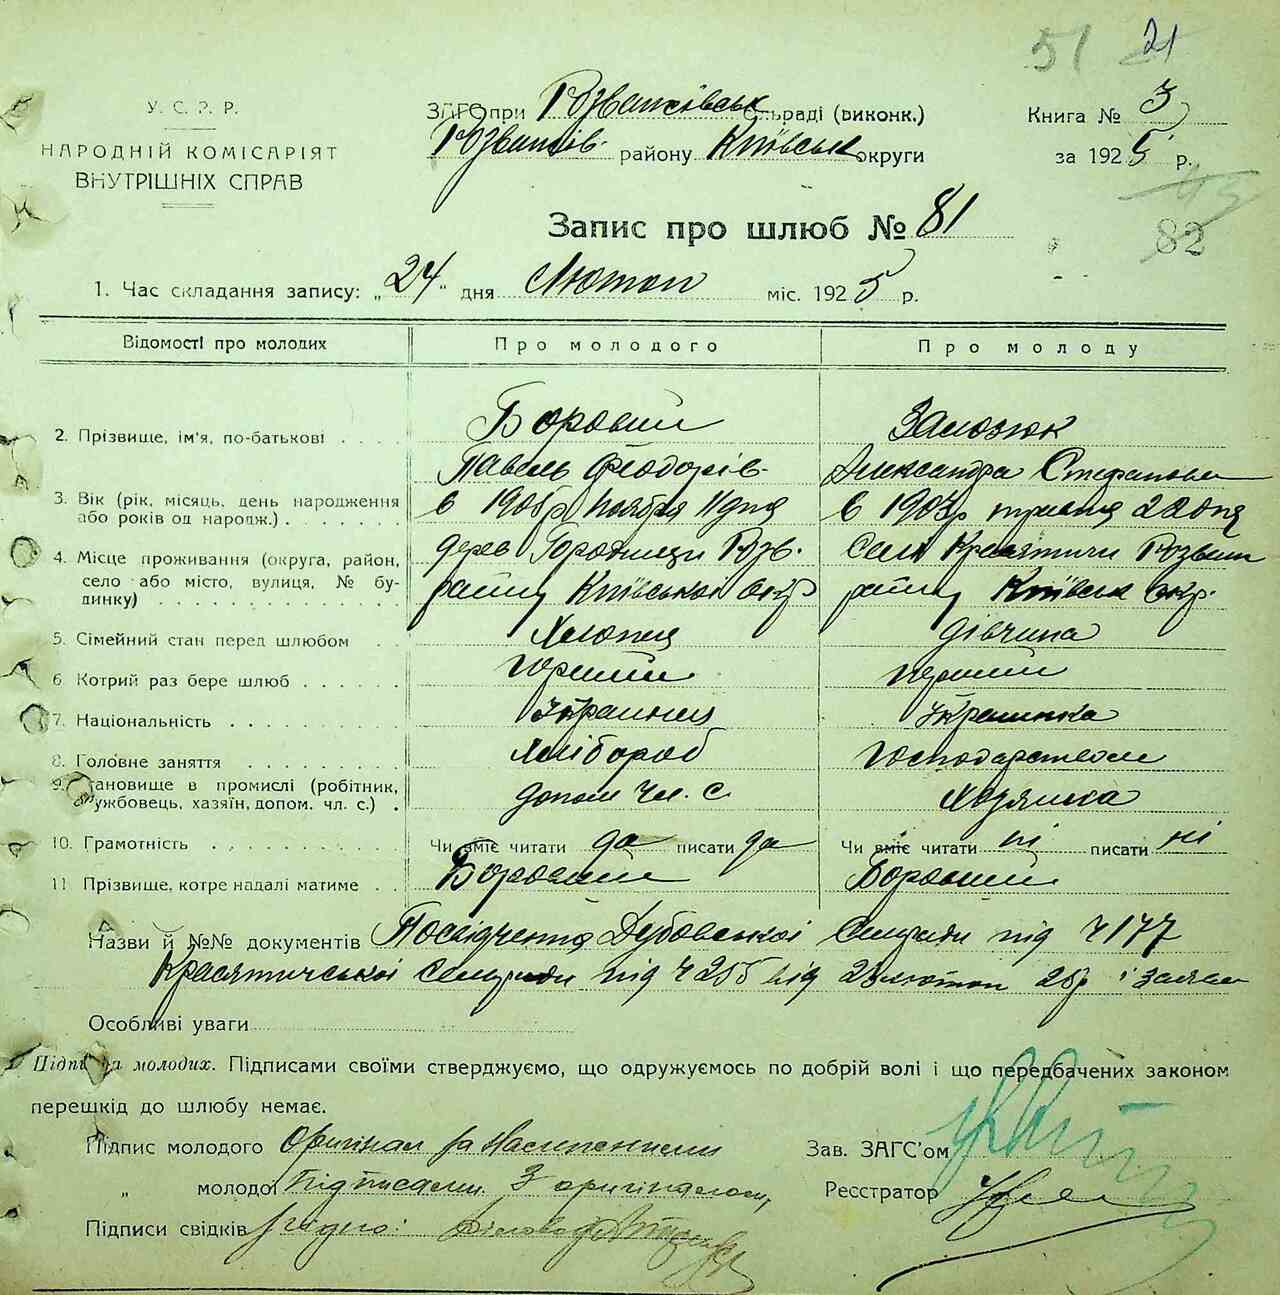 51 21
У.С.Р.Р.
НАРОДНІЙ КОМІСАРІЯТ
ВНУТРІШНІХ СПРАВ
ЗАГС при Розважівськ Сільраді (виконк.)
Розважів. району Київськ округи
Книга № 3
за 1925 р.
82
Запис про шлюб № 81
1. Час складання запису: „24“ дня Лютоп міс. 1925 р.
Відомості про молодих Про молодого Про молоду
2. Прізвище, ім'я, по-батькові . . . . Боровий Замозюк
Павель Феодорів Александра Степанови
3. Вік (рік, місяць, день народження або років од народж.) . . . . . . в 1905р Ноября 11 дня в 1903р 22 дня
4. Місце проживання (округа, район, село або місто, вулиця, № будинку) . . . . . . . . . . дерев Городищи Розв. району Київської окр Села Красятичи Розваж району Київськ окр.
5. Сімейний стан перед шлюбом . . Хлопец дівчина
6. Котрий раз бере шлюб . . . . . . перший перший
7. Національність . . . . . . . . . Українец Українка
8. Головне заняття . . . . . . . . Хлібороб Господарством
9. Становище в промислі (робітник, службовець, хазяїн, допом. чл. с.) . допом чл. с. Хозяика
10. Грамотність . . . . . . . . . . Чи вміє читати да писати да Чи вміє читати ні писати ні
11 Прізвище, котре надалі матиме . . Боровий Боровий
Назви й №№ документів Посвідчення Дубовської Сільради під ч 177
Красятичської Сільради під ч 255 від 23 лютоп 25р і заяви
Особливі уваги
Підписи молодих. Підписами своїми стверджуємо, що одружуємось по добрій волі і що передбачених законом
перешкід до шлюбу немає.
Підпис молодого Оригінал за Належними Зав. ЗАГС'ом
„ молодої Підписами. З оригіналом, Реєстратор
Підписи свідків згідно: Діловод